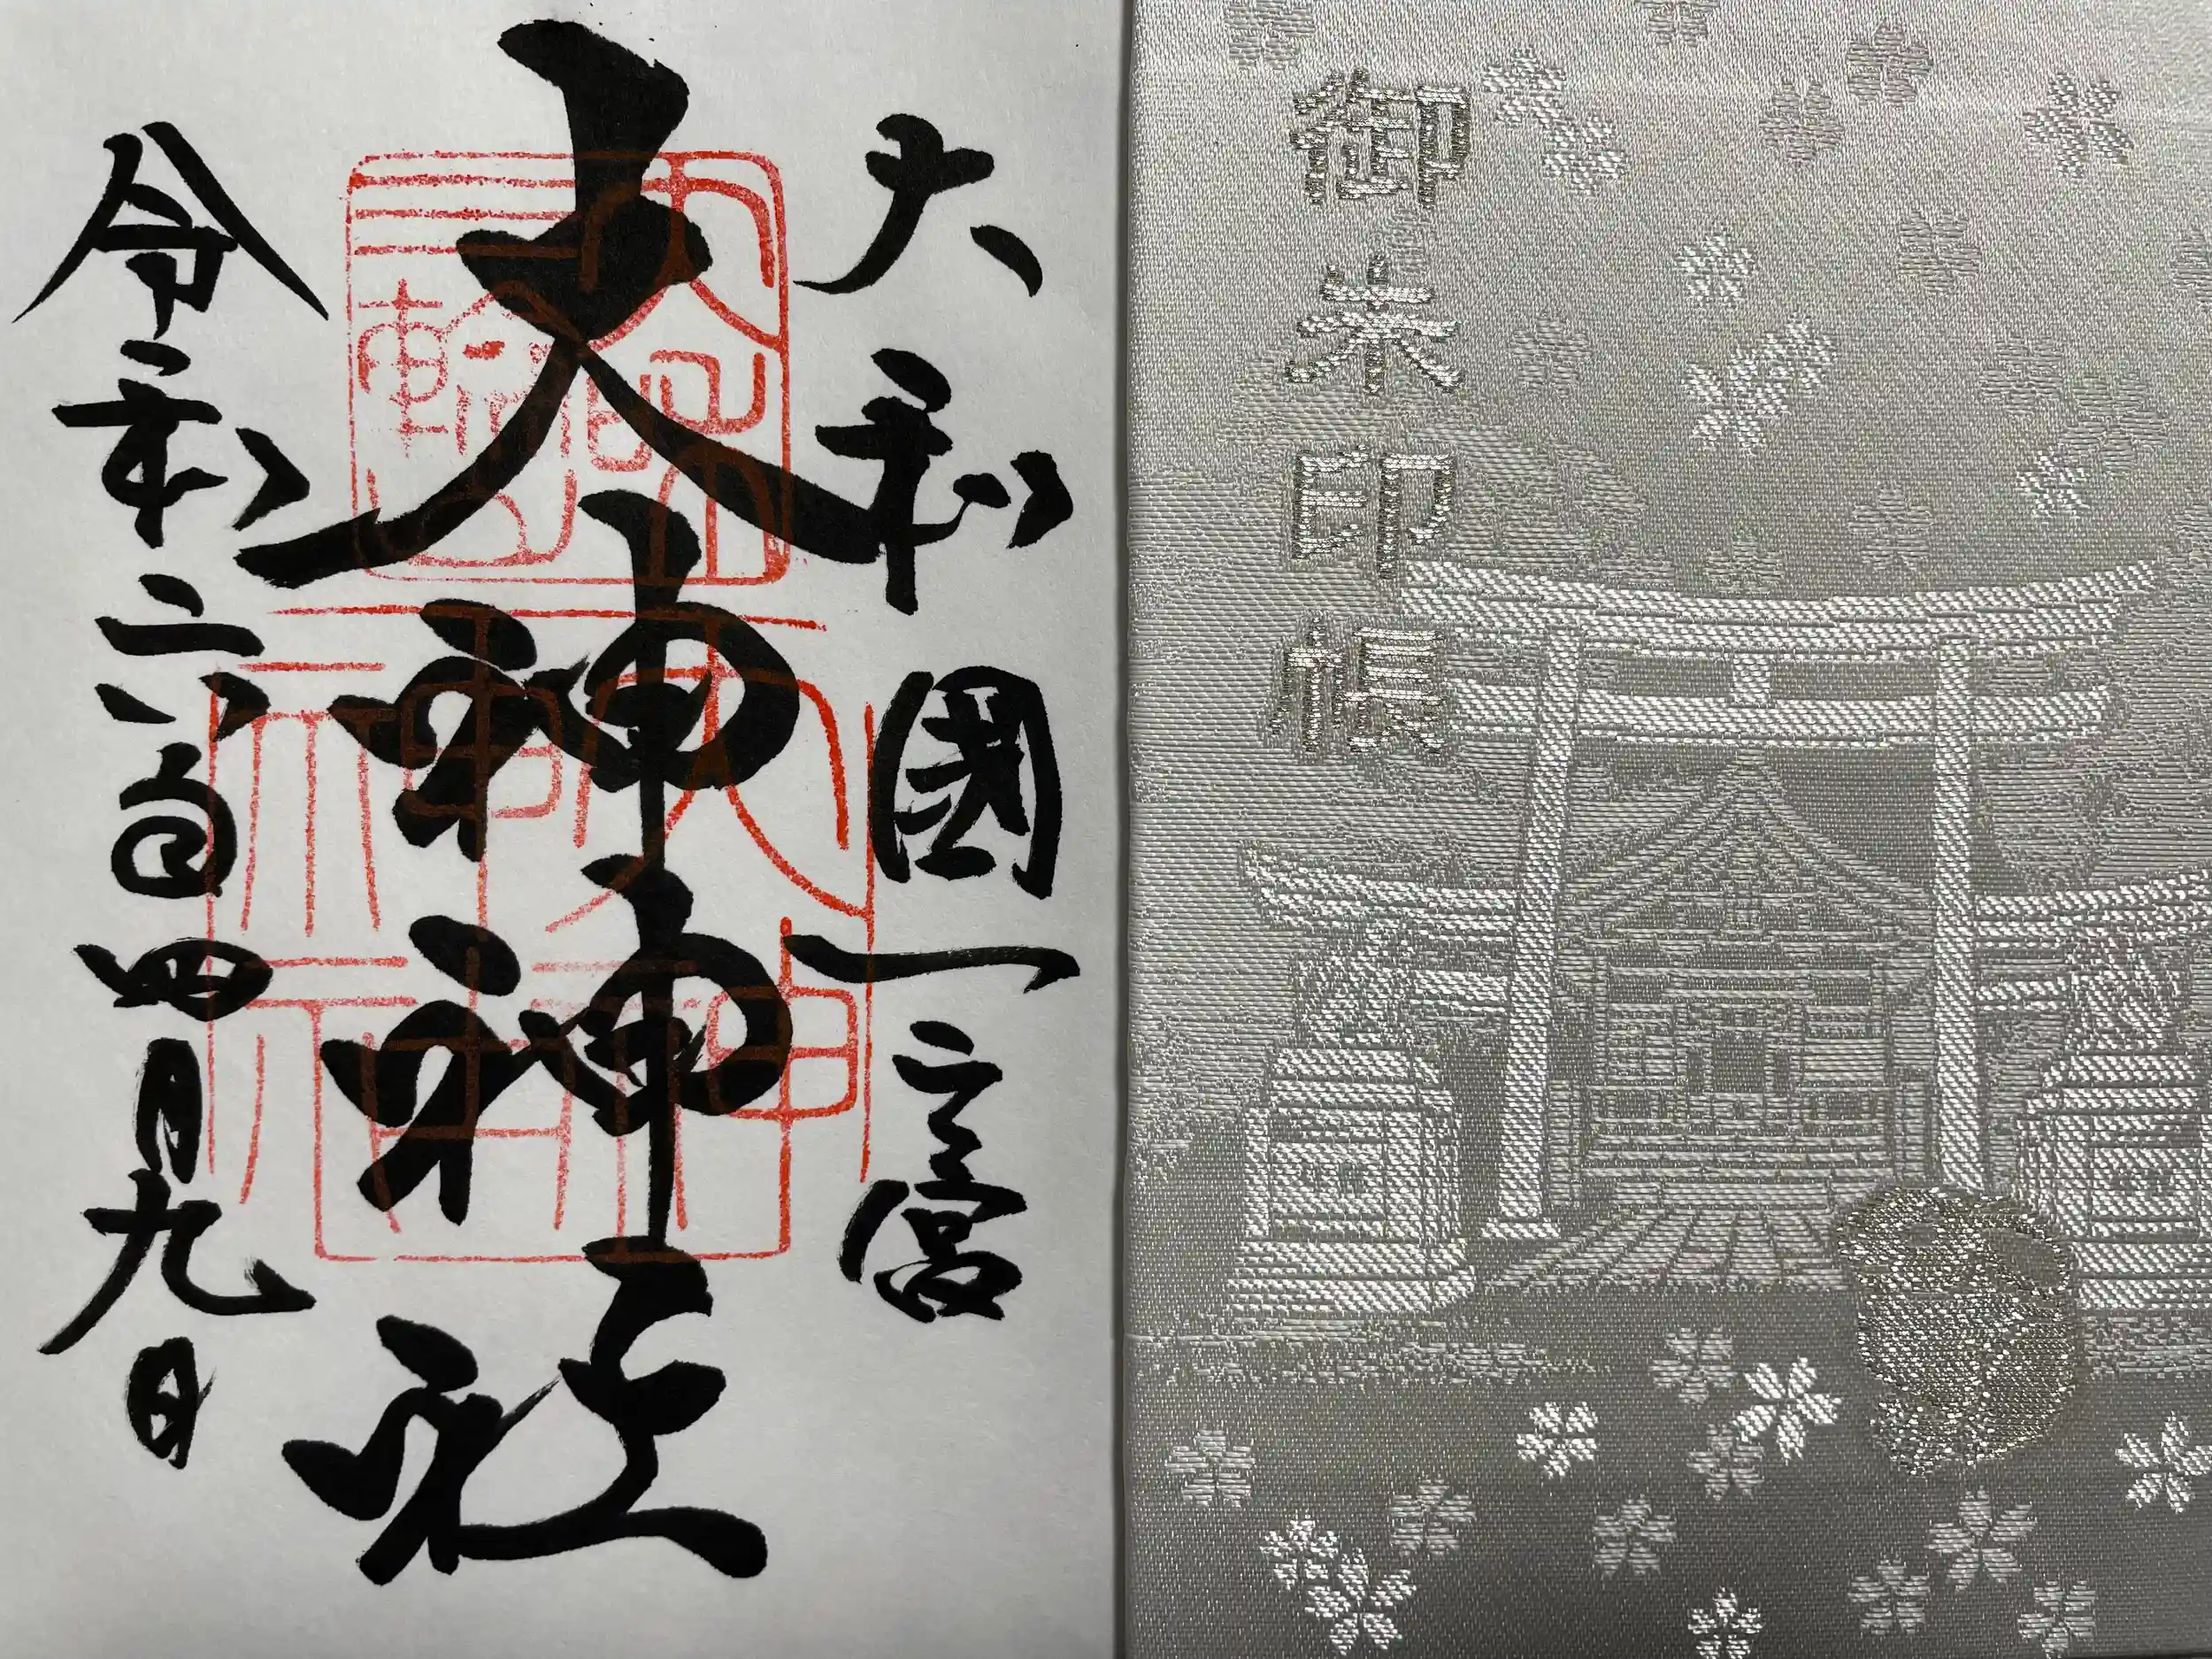 御朱印帳
大和國一之宮
大神神社
令和六年四月九日
三輪山